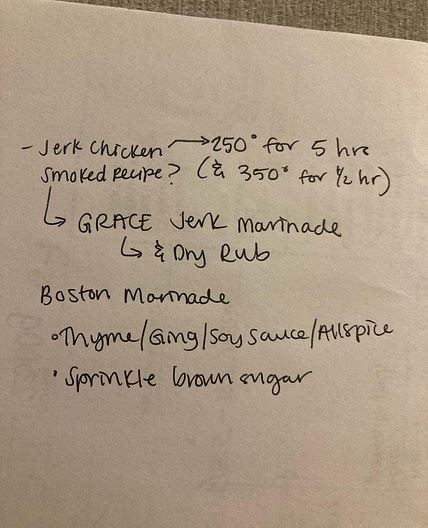 - Jerk Chicken → 250° for 5 hrs
smoked recipe? (& 350° for 1/2 hr)
↳ GRACE Jerk Marinade
↳ & Dry Rub
Boston Marinade
• Thyme/Ging/Soy sauce/Allspice
• Sprinkle brown sugar